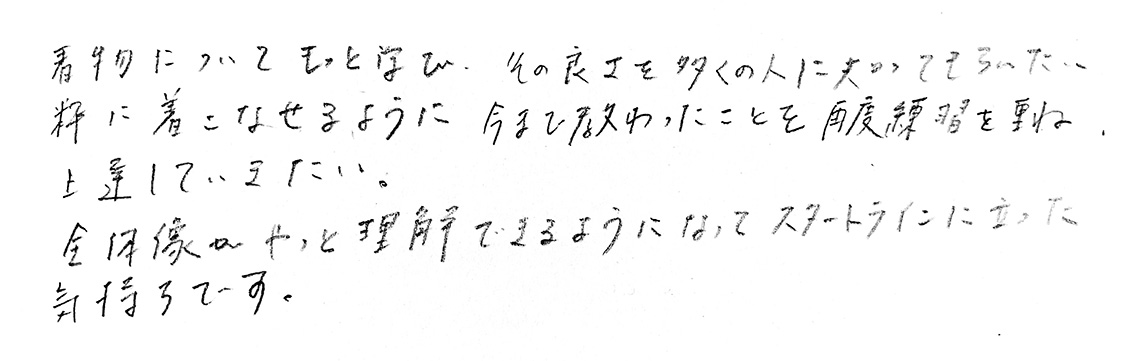 着物についてもっと学び、その良さを多くの人に知ってもらいたい
粋に着こなせるように 今まで教わったことを再度練習を重ね、
上達していきたい。
全体像がやっと理解できるようになってスタートラインに立った
気持ちです。